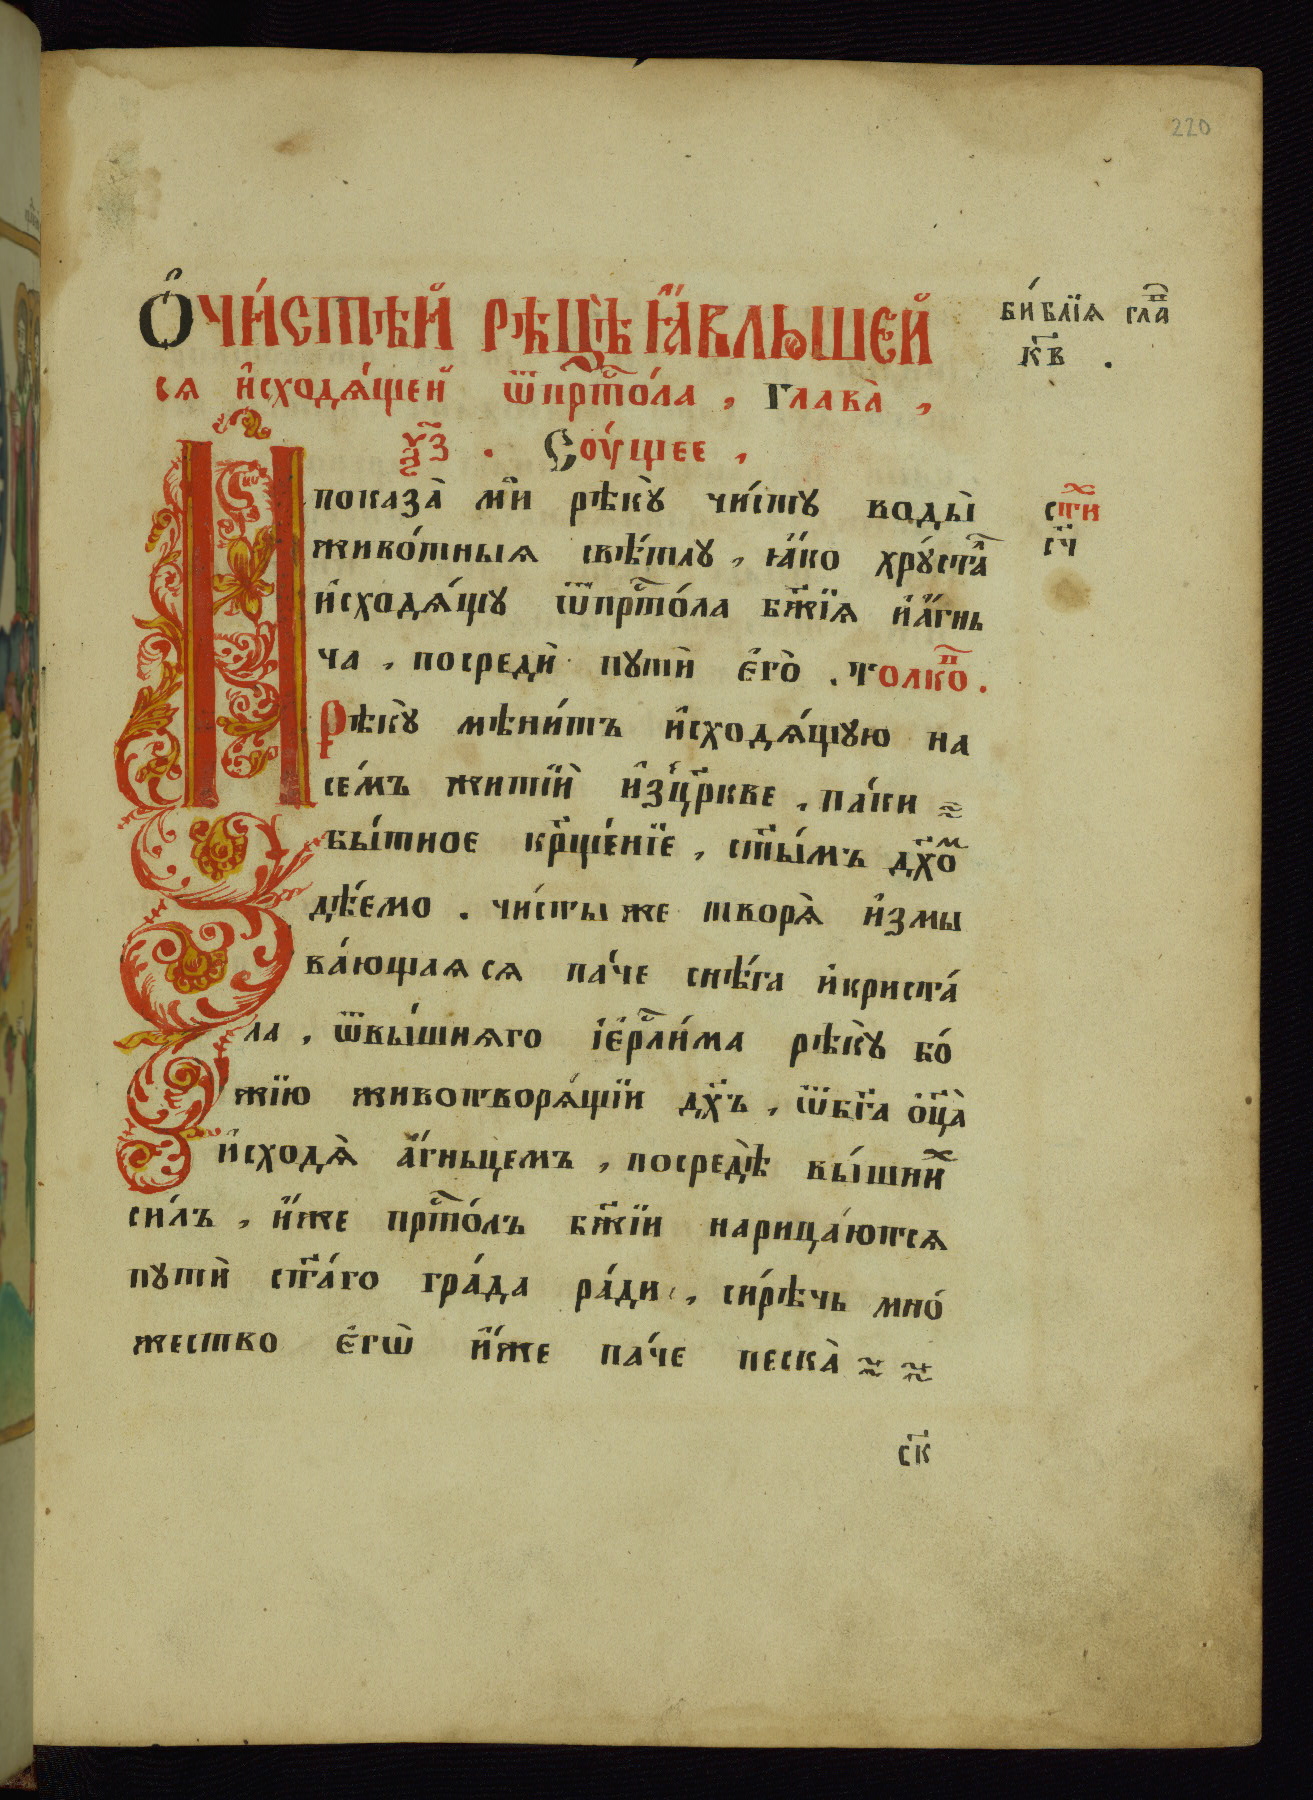 220
Ѻ҆чи́стѣй рѣцѣ̀ ꙗ҆́вльшей
сѧ и҆сходѧ́щей ѿпрⷭ҇то́ла, глава̀,
ѯ҃з. Соу́щее,
библі́ѧ глаⷡ҇
к҃в.
И показа́ ми рѣкꙋ̀ чи́стꙋ воды̀
живо́тныѧ свѣ́тлꙋ, ꙗ҆́ко хрꙋста́ⷧ
и҆сходѧ́щꙋ ѿпрⷭ҇то́ла бж҃їѧ и҆а҆́гнь
ча, посредѝ пꙋтѝ є҆гѡ̀. толкоⷡ҇.
стиⷯ
с҃ч
Рѣкꙋ̀ мѣни́тъ и҆сходѧ́щꙋю на
се́мъ житїѝ и҆зцр҃кве, па́ки
бы́тное крⷭ҇ще́нїе, ст҃ы́мъ дх҃оⷨ
дѣ́емо. чи́сты же творѧ̀ и҆змы
ва́ющаѧсѧ па́че снѣ́га и҆криста́
ла, ѿвы́шнѧго і҆є҆рⷭ҇ли́ма рѣкꙋ̀ бо́
жїю животворѧ́щїи дх҃ъ, ѿбг҃а ѻ҆ц҃а̀
и҆сходѧ̀ а҆́гньцемъ, посредѣ̀ вы́шниⷯ
си́лъ, и҆́же прⷭ҇то́лъ бж҃їи нарица́ютсѧ
пꙋтѝ ст҃а́го гра́да ра́ди, си́рѣчь мно́
жество є҆гѡ̀ и҆́же па́че пескà
с҃к